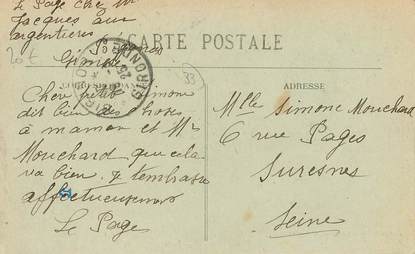 Le Page chez Mr
Jacques aux
argentières
CARTE POSTALE
Gironde
33
ADRESSE
Cher petite Simone
dit bien des choses
à maman et Mr
Mouchard que cela
va bien. Je t'embrasse
affectueusement
Le Page
Mlle Simone Mouchard
6 rue Pages
Suresnes
Seine